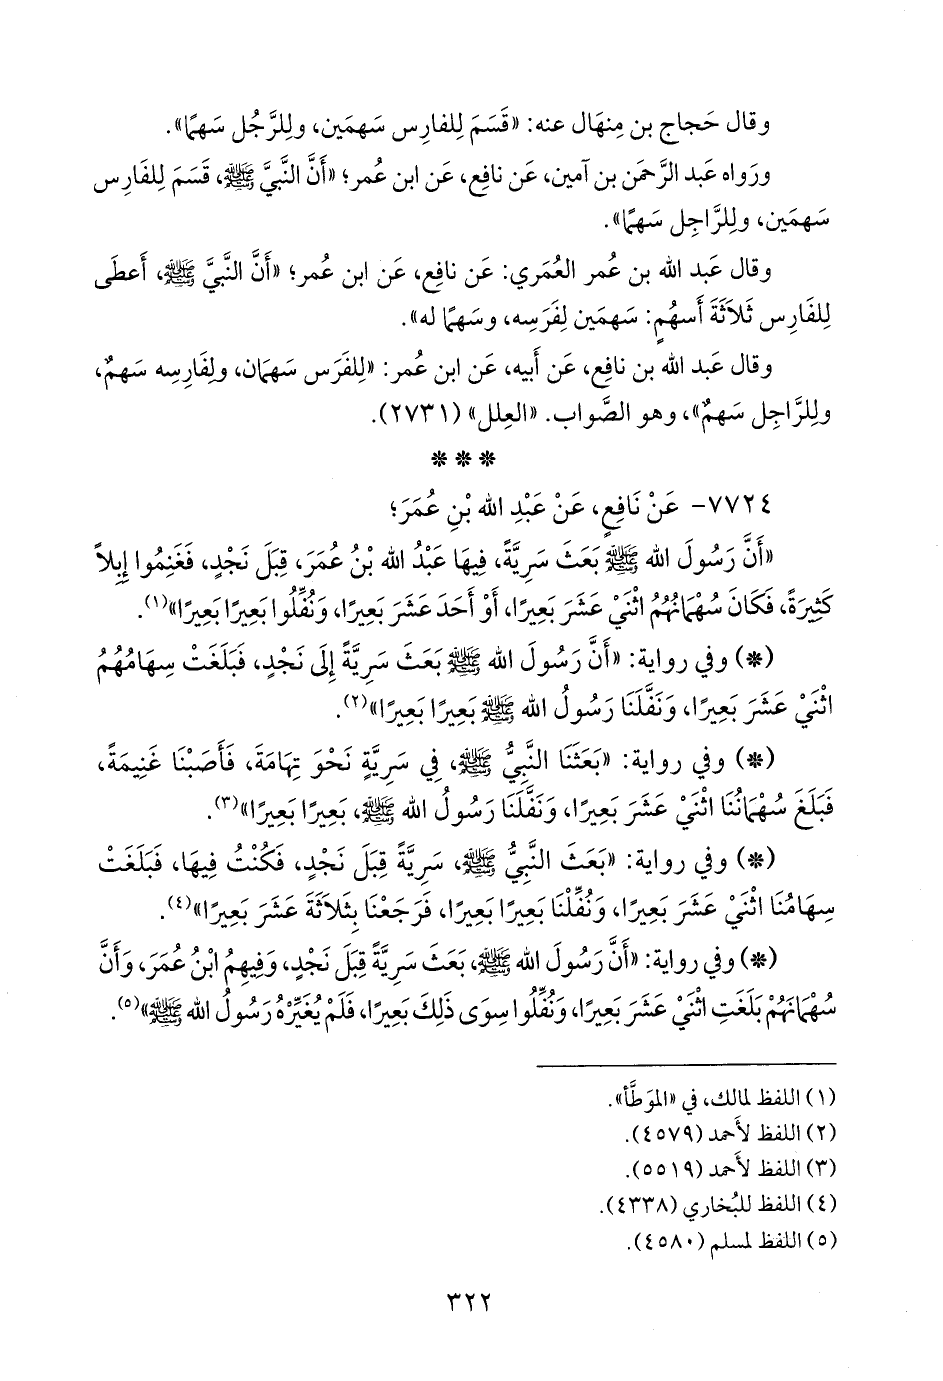 وقال حَجاج بن مِنهَال عنه: «قَسَمَ لِلفارِس سَهمَين، ولِلرَّجُل سَهمًا».
ورَواه عَبد الرَّحمَن بن آمين، عَن نافِع، عَن ابن عُمر؛ «أَنَّ النَّبيَّ ﷺ، قَسَمَ لِلفَارِس
سَهمَين، ولِلرَّاجِل سَهمًا».
وقال عَبد الله بن عُمر العُمَري: عَن نافِع، عَن ابن عُمر؛ «أَنَّ النَّبيَّ ﷺ، أَعطَى
لِلفَارِس ثَلاَثَةَ أَسهُمٍ: سَهمَين لِفَرَسِه، وسَهمًا له».
وقال عَبد الله بن نافِع، عَن أَبيه، عَن ابن عُمر: «لِلفَرَس سَهمَان، ولِفَارِسِه سَهمٌ،
ولِلرَّاجِل سَهمٌ»، وهو الصَّواب. «العِلل» (٢٧٣١).
* * *
٧٧٢٤- عَنْ نَافِعٍ، عَنْ عَبْدِ الله بْنِ عُمَرَ؛
«أَنَّ رَسُولَ الله ﷺ بَعَثَ سَرِيَّةً، فِيهَا عَبْدُ الله بْنُ عُمَرَ، قِبَلَ نَجْدٍ، فَغَنِمُوا إِبِلاً
كَثِيرَةً، فَكَانَ سُهْمَانُهُمُ اثْنَيْ عَشَرَ بَعِيرًا، أَوْ أَحَدَ عَشَرَ بَعِيرًا، وَنُفِّلُوا بَعِيرًا بَعِيرًا»(١).
(*) وفي رواية: «أَنَّ رَسُولَ الله ﷺ بَعَثَ سَرِيَّةً إِلَى نَجْدٍ، فَبَلَغَتْ سِهَامُهُمُ
اثْنَيْ عَشَرَ بَعِيرًا، وَنَفَّلَنَا رَسُولُ الله ﷺ بَعِيرًا بَعِيرًا»(٢).
(*) وفي رواية: «بَعَثَنَا النَّبِيُّ ﷺ، فِي سَرِيَّةٍ نَحْوَ تِهَامَةَ، فَأَصَبْنَا غَنِيمَةً،
فَبَلَغَ سُهْمَانُنَا اثْنَيْ عَشَرَ بَعِيرًا، وَنَفَّلَنَا رَسُولُ الله ﷺ، بَعِيرًا بَعِيرًا»(٣).
(*) وفي رواية: «بَعَثَ النَّبِيُّ ﷺ، سَرِيَّةً قِبَلَ نَجْدٍ، فَكُنْتُ فِيهَا، فَبَلَغَتْ
سِهَامُنَا اثْنَيْ عَشَرَ بَعِيرًا، وَنُفِّلْنَا بَعِيرًا بَعِيرًا، فَرَجَعْنَا بِثَلاَثَةَ عَشَرَ بَعِيرًا»(٤).
(*) وفي رواية: «أَنَّ رَسُولَ الله ﷺ، بَعَثَ سَرِيَّةً قِبَلَ نَجْدٍ، وَفِيهِمُ ابْنُ عُمَرَ، وَأَنَّ
سُهْمَانَهُمْ بَلَغَتِ اثْنَيْ عَشَرَ بَعِيرًا، وَنُفِّلُوا سِوَى ذَلِكَ بَعِيرًا، فَلَمْ يُغَيِّرْهُ رَسُولُ الله ﷺ»(٥).
(١) اللفظ لمالك، في «الموَطَّأ».
(٢) اللفظ لأَحمد (٤٥٧٩).
(٣) اللفظ لأَحمد (٥٥١٩).
(٤) اللفظ للبُخاري (٤٣٣٨).
(٥) اللفظ لمسلم (٤٥٨٠).
٣٢٢